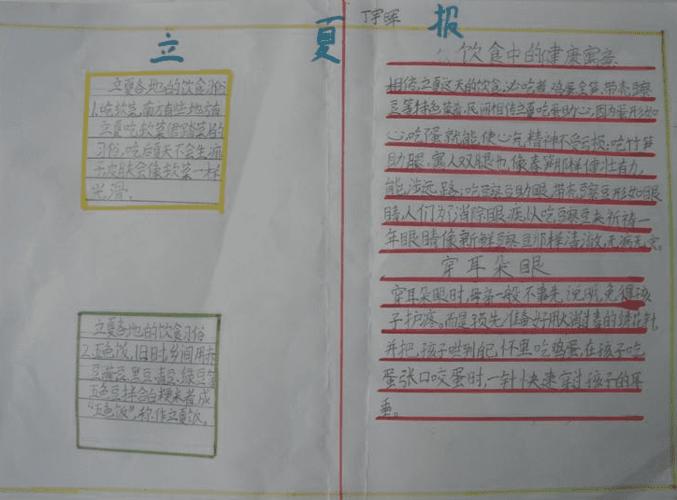 立夏报
丁宇晖
立夏各地的饮食习俗
1.吃软菜,南方有些地方有
立夏吃软菜
习俗,吃后夏天不会生痱
子,皮肤会像软菜一样
光滑。
立夏各地的饮食习俗
2.五色饭,旧时,乡间用赤
豆、黄豆、黑豆、青豆、绿豆等
五色豆拌合白粳米煮成
“五色饭”,称作立夏饭。
饮食中的健康寓意
相传,立夏这天的饮食,必吃者,鸡蛋、全笋、带壳豌
豆等特色菜肴,民间相传立夏吃蛋助心,因为蛋形如
心,吃蛋就能使心气精神不受亏损;吃竹笋
助腿,寓人双腿也像春笋那样健壮有力,
能涉远路;吃豌豆助眼,带壳豌豆形如眼
睛,人们为消除眼疾,以吃豌豆来祈祷一
年眼睛像新鲜豌豆那样清澈,无病无灾。
穿耳朵眼
穿耳朵眼时,母亲一般不事先说明,免得孩
子护疼。而是预先准备好用火消毒的绣花针,
并把孩子哄到自己怀里,吃鸡蛋,在孩子吃
蛋张口咬蛋时,一针快速穿过孩子的耳
垂。